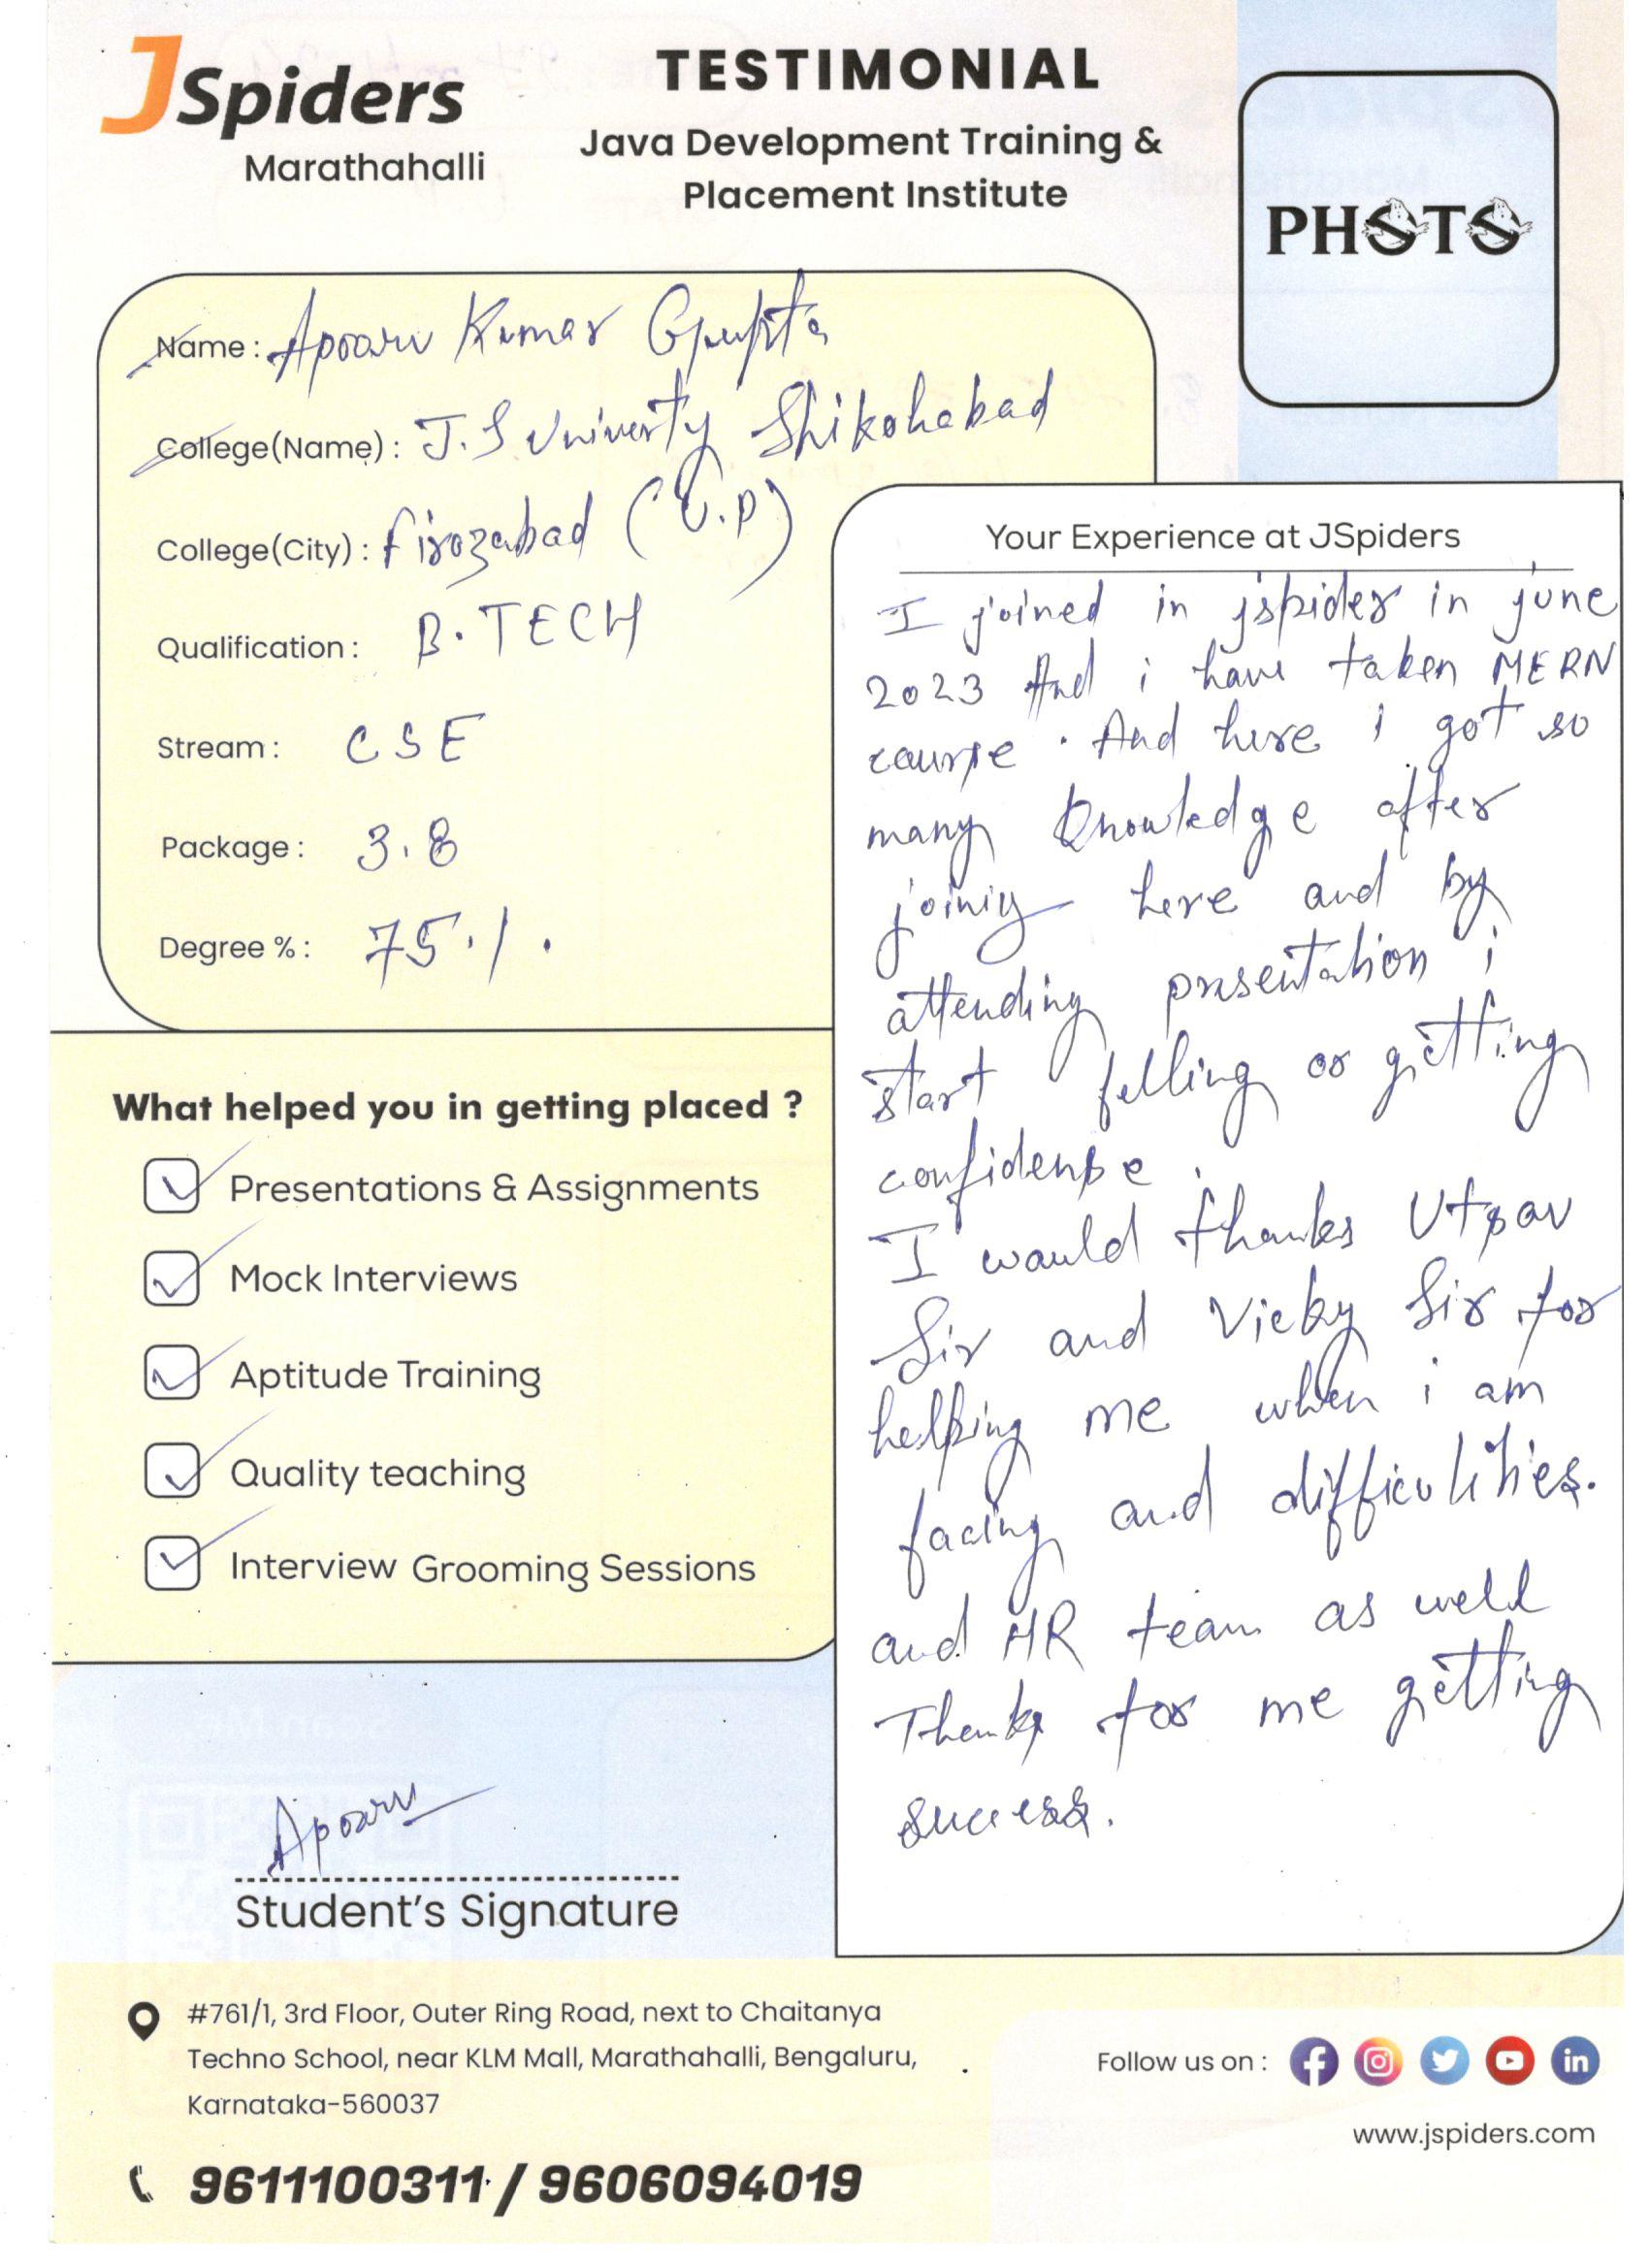 JSpiders
Marathahalli
TESTIMONIAL
Java Development Training &
Placement Institute
PHOTO
Name : Apoorv Kumar Gupta
College(Name) : J.S Univerty Shikohabad
College(City) : Firozabad (U.P)
Qualification : B.TECH
Stream : CSE
Package : 3.8
Degree % : 75%.
What helped you in getting placed ?
Presentations & Assignments
Mock Interviews
Aptitude Training
Quality teaching
Interview Grooming Sessions
Apoorv
Student's Signature
Your Experience at JSpiders
I joined in jspider in june
2023 And i have taken MERN
course . And here i got so
many knowledge after
joining here and by
attending presentation i
start felling or getting
confidense .
I would thanks
Sir and Vicky Sir for
helping me when i am
facing and difficulities.
and HR team as well
Thanks for me getting
success.
#761/1, 3rd Floor, Outer Ring Road, next to Chaitanya
Techno School, near KLM Mall, Marathahalli, Bengaluru,
Karnataka-560037
9611100311 / 9606094019
Follow us on :
www.jspiders.com